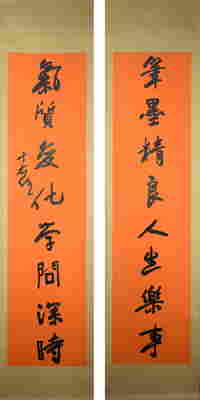 筆墨精良人生樂事
氣質变化学問深時